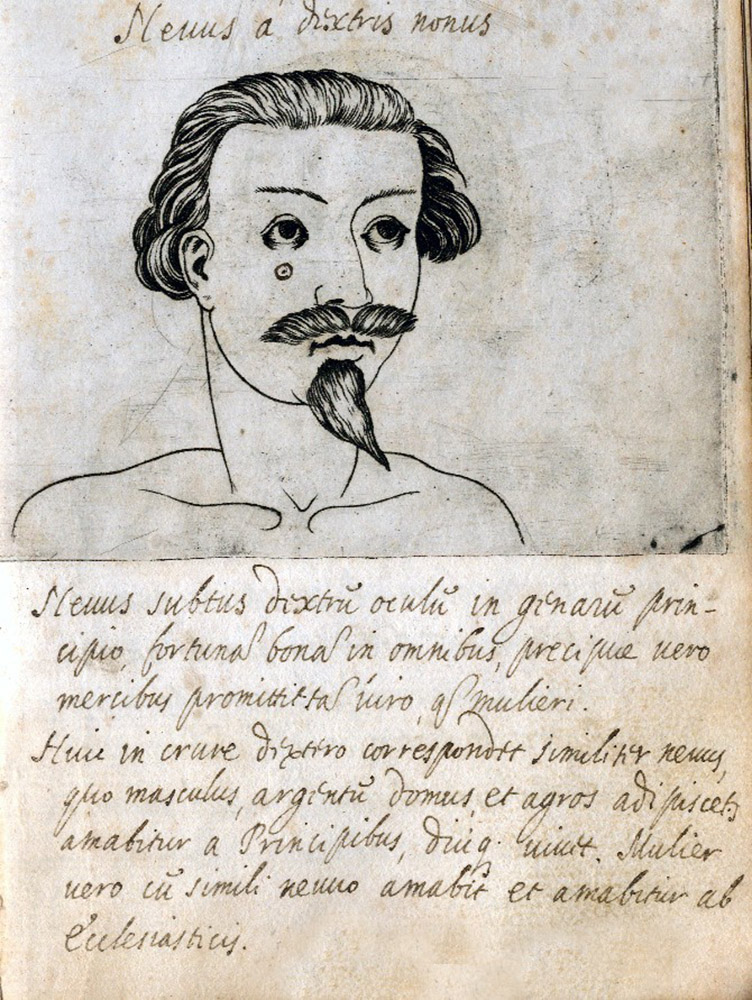 Neuus á dextris nonus
Neuus subtus dextrū oculū in genarū prin-
cipio, fortunā bonā in omnibus, precipue uero
mercibus promittit tā uiro, q̄ mulieri.
Huic in crure dextero correspondet similiter neuus,
quo masculus, argentū domus, et agros adipiscetr
amabitur a Principibus, diuq. uiuet. Mulier
uero cū simili neuuo amabit et amabitur ab
Ecclesiasticis.